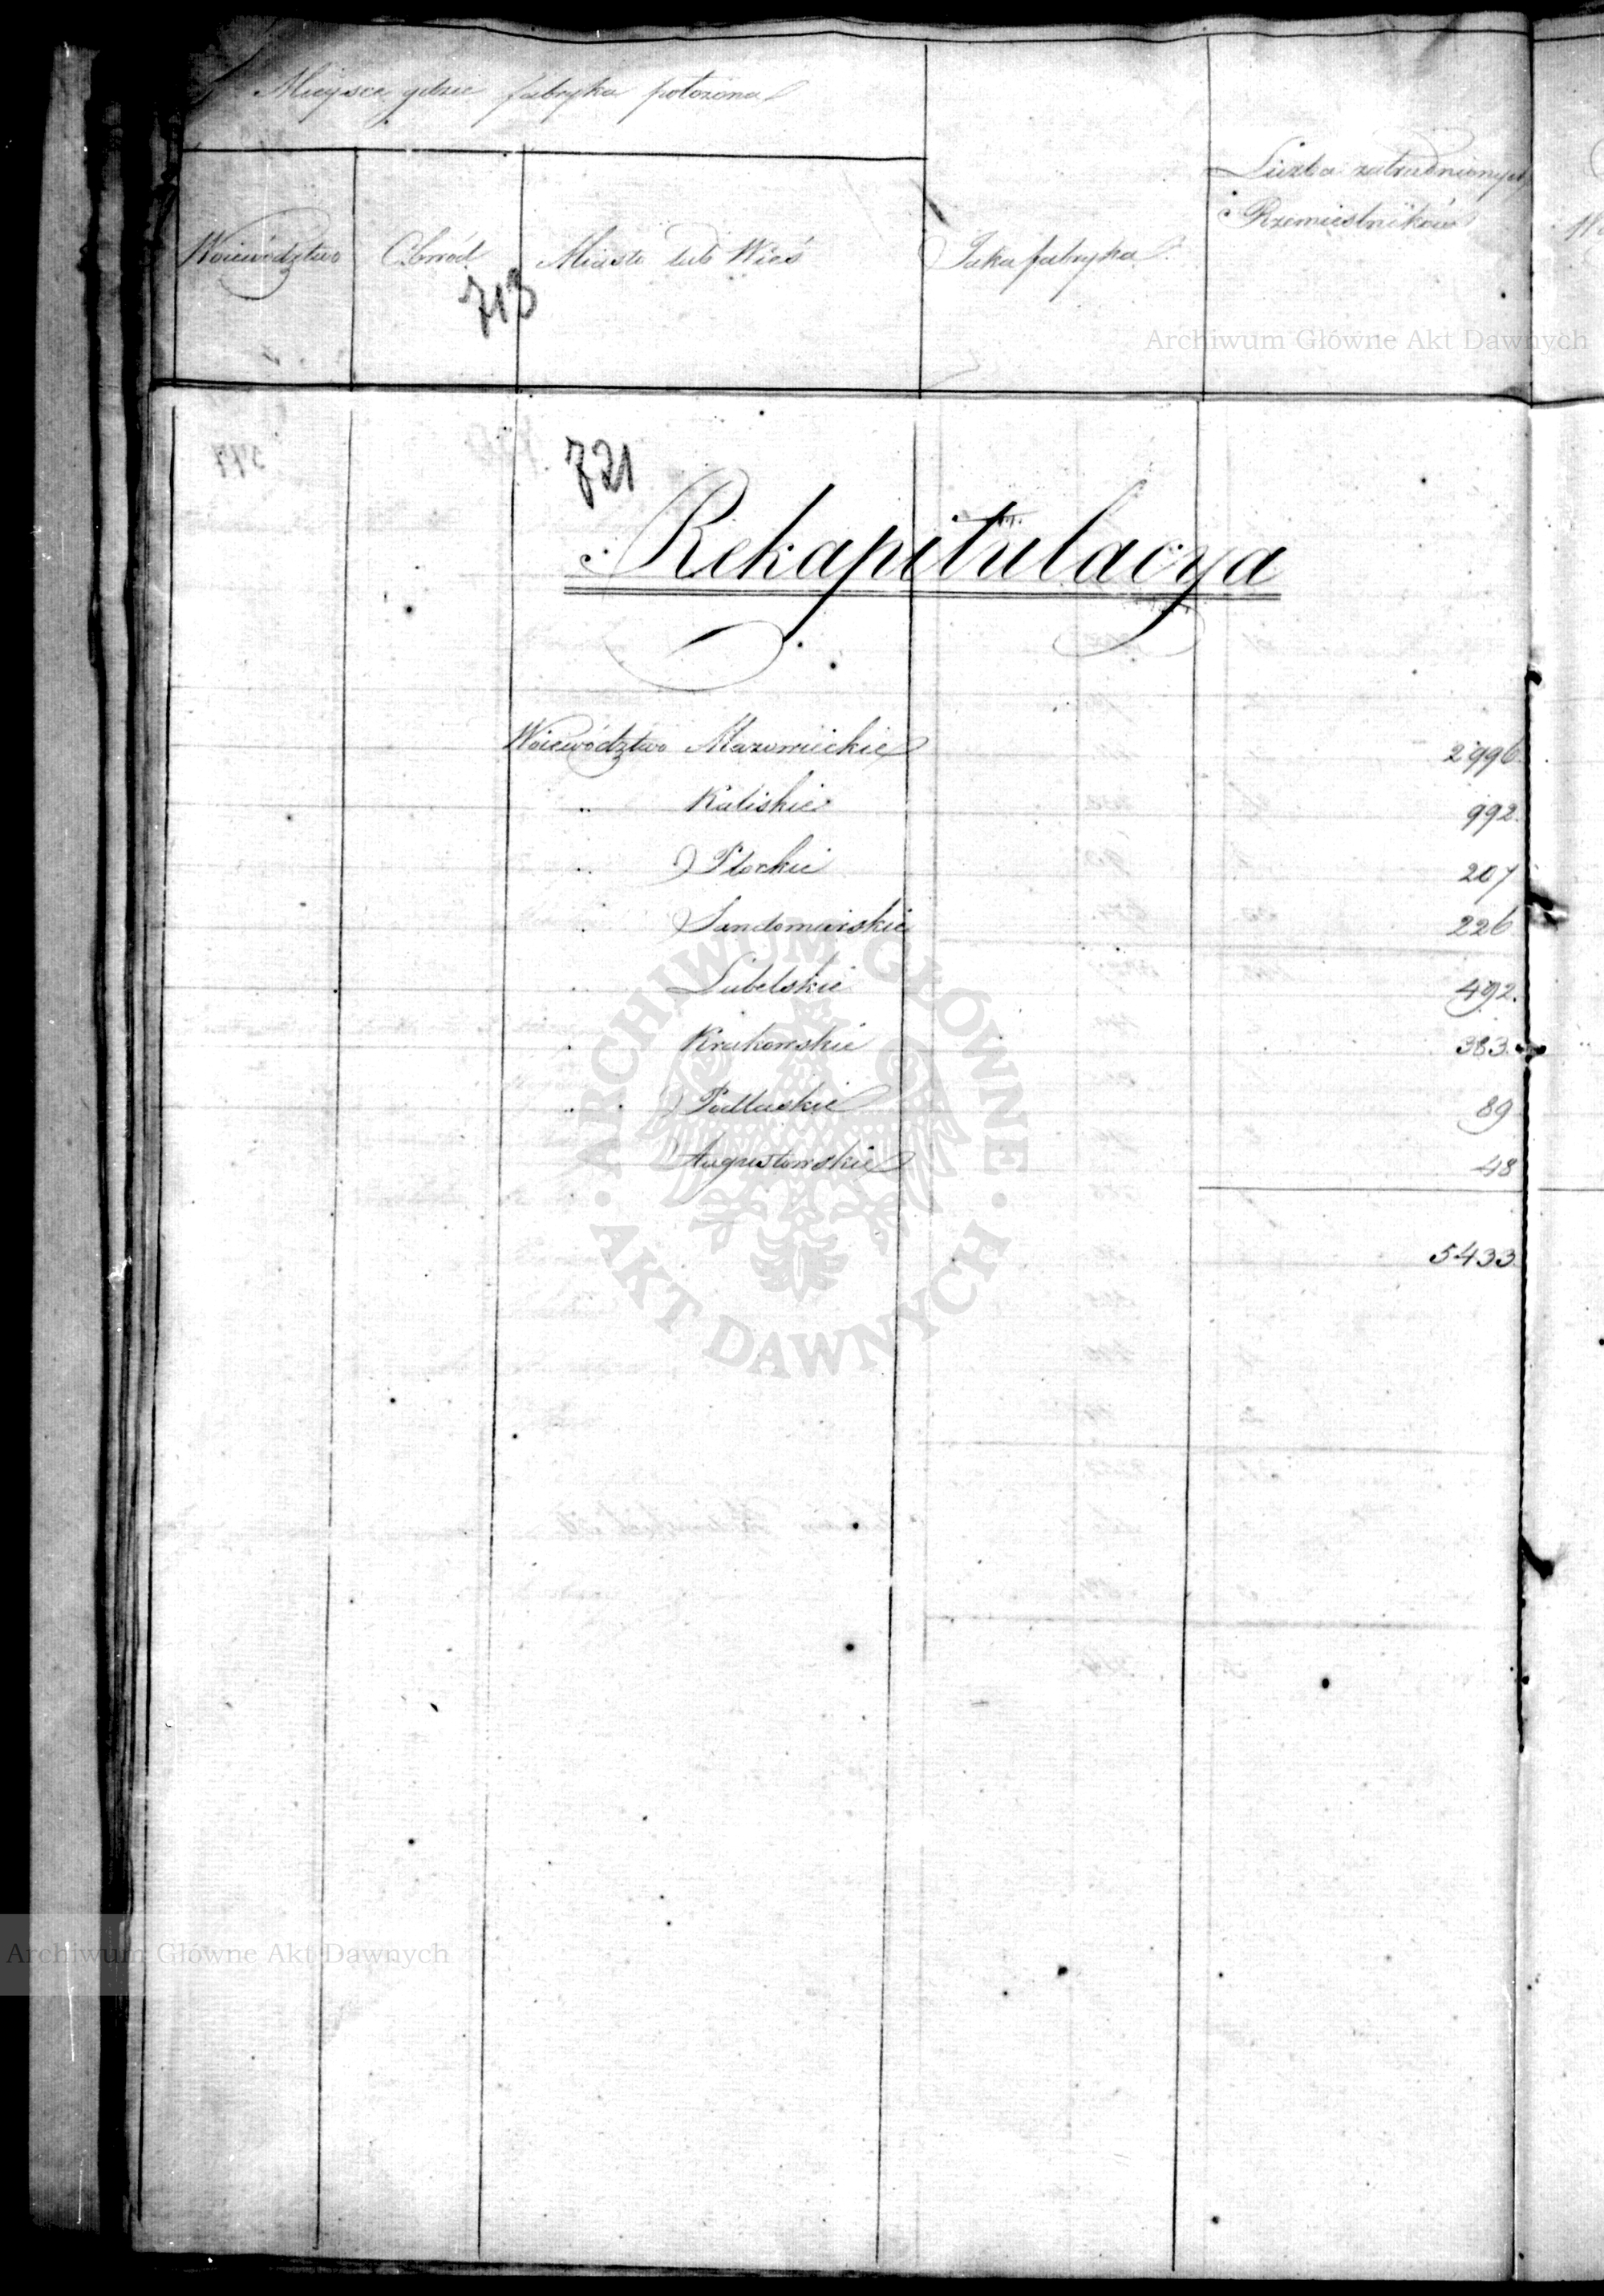 Mieysce gdzie fabryka położona
Liczba zatrudnionych
Rzemieślników
Woiewództwo Obwód Miasto lub Wieś Jaka fabryka
713
Archiwum Główne Akt Dawnych
721
Rekapitulacya
Woiewództwo Mazowieckie 2996
„ Kaliskie 992.
„ Płockie 207
„ Sandomirskie 226
„ Lubelskie 492.
„ Krakowskie 383.
„ Podlaskie 89
Augustowskie 48
5433
ARCHIWUM GŁÓWNE
AKT DAWNYCH
Archiwum Główne Akt Dawnych